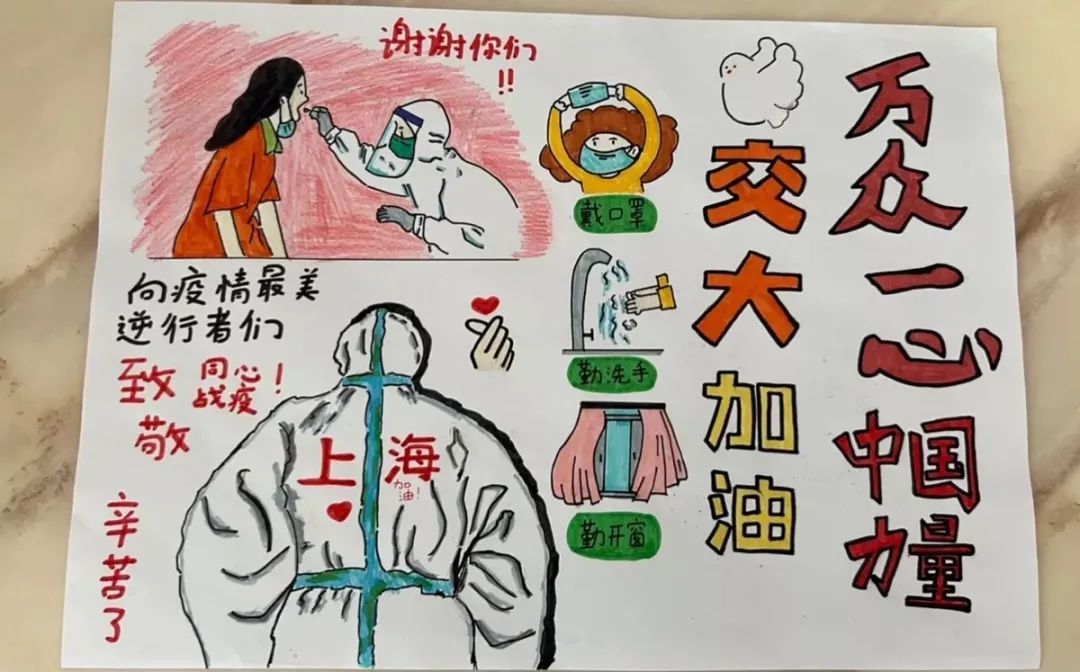 谢谢你们
!!
向疫情最美
逆行者们
致敬
同心
战疫！
辛苦了
上海
加油！
戴口罩
勤洗手
勤开窗
交大加油
万众一心中国力量